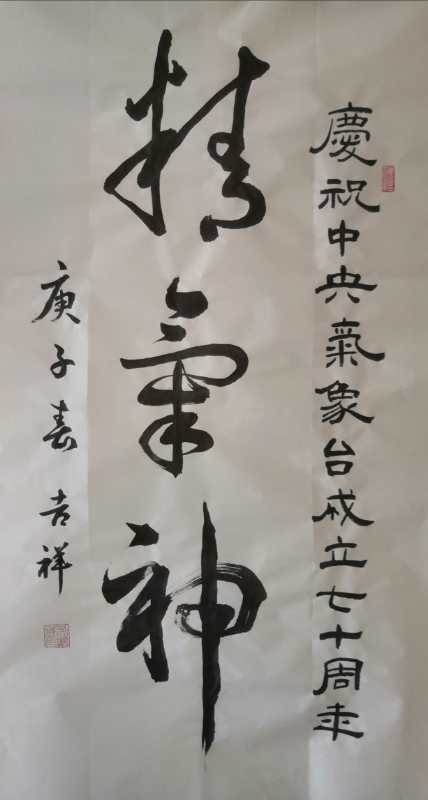 慶祝中央氣象台成立七十周年
精氣神
庚子春 吉祥